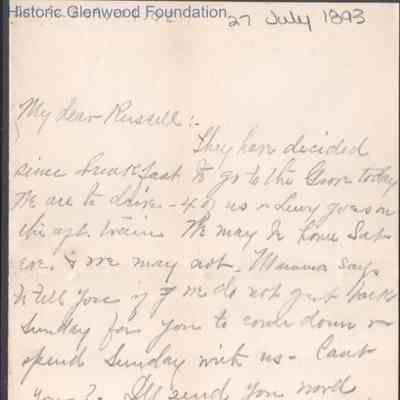 Historic Glenwood Foundation
27 July 1893
My dear Russell:-
They have decided
since breakfast to go to the Grove today
We are to drive - 4 of us & Lucy goes on
the aft. train. We may be home Sat
eve. & we may not. Mamma says
to tell you if we do not get back
Sunday for you to come down &
spend Sunday with us - Cant
you? I'll send you word